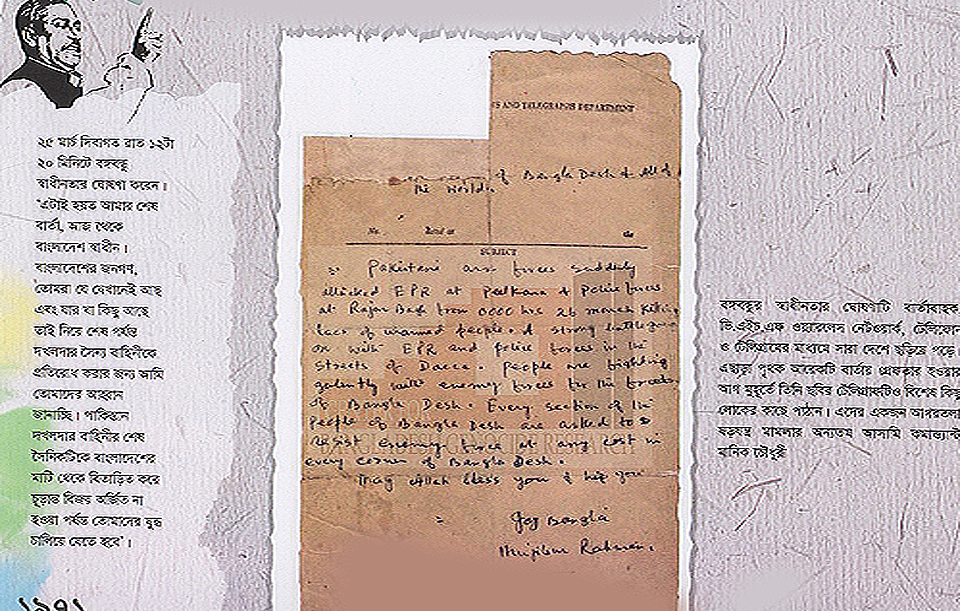 ২৫ মার্চ দিবাগত রাত ১২টা
২০ মিনিটে বঙ্গবন্ধু
স্বাধীনতার ঘোষণা করেন।
'এটাই হয়ত আমার শেষ
বার্তা, আজ থেকে
বাংলাদেশ স্বাধীন।
বাংলাদেশের জনগণ,
'তোমরা যে যেখানেই আছ
এবং যার যা কিছু আছে
তাই নিয়ে শেষ পর্যন্ত
দখলদার সৈন্য বাহিনীকে
প্রতিরোধ করার জন্য আমি
তোমাদের আহ্বান
জানাচ্ছি। পাকিস্তান
দখলদার বাহিনীর শেষ
সৈনিকটিকে বাংলাদেশের
মাটি থেকে বিতাড়িত করে
চূড়ান্ত বিজয় অর্জিত না
হওয়া পর্যন্ত তোমাদের যুদ্ধ
চালিয়ে যেতে হবে'।
১৯৭১
S AND TELEGRAPHS DEPARTMENT
of Bangla Desh & All of
The World
No.
SUBJECT
Pakistani forces suddenly
attacked EPR at Peelkhana & Police forces
at Rajar Bag from 0000 hrs 26 march killing
lacs of unarmed people. A strong battle going
on with EPR and police forces in the
streets of Dacca. People are fighting
galantly with enemy forces for the freedom
of Bangla Desh. Every section of the
People of Bangla Desh are asked to
resist enemy force at any cost in
every corner of Bangla Desh.
May Allah bless you & help you
Joy Bangla
Mujibur Rahman.
BANGLADESH GENOCIDE RESEARCH
বঙ্গবন্ধুর স্বাধীনতার ঘোষণাটি বার্তাবাহক
ভি.এইচ.এফ ওয়্যারলেস নেটওয়ার্ক, টেলিফোন
ও টেলিগ্রামের মাধ্যমে সারা দেশে ছড়িয়ে পড়ে।
এছাড়া পৃথক আরেকটি বার্তায় গ্রেফতার হওয়ার
আগ মুহূর্তে তিনি ছবির টেলিগ্রামটিও বিশেষ কিছু
লোকের কাছে পাঠান। এদের একজন আগরতলা
ষড়যন্ত্র মামলার অন্যতম আসামি কমান্ড্যান্ট
মানিক চৌধুরী